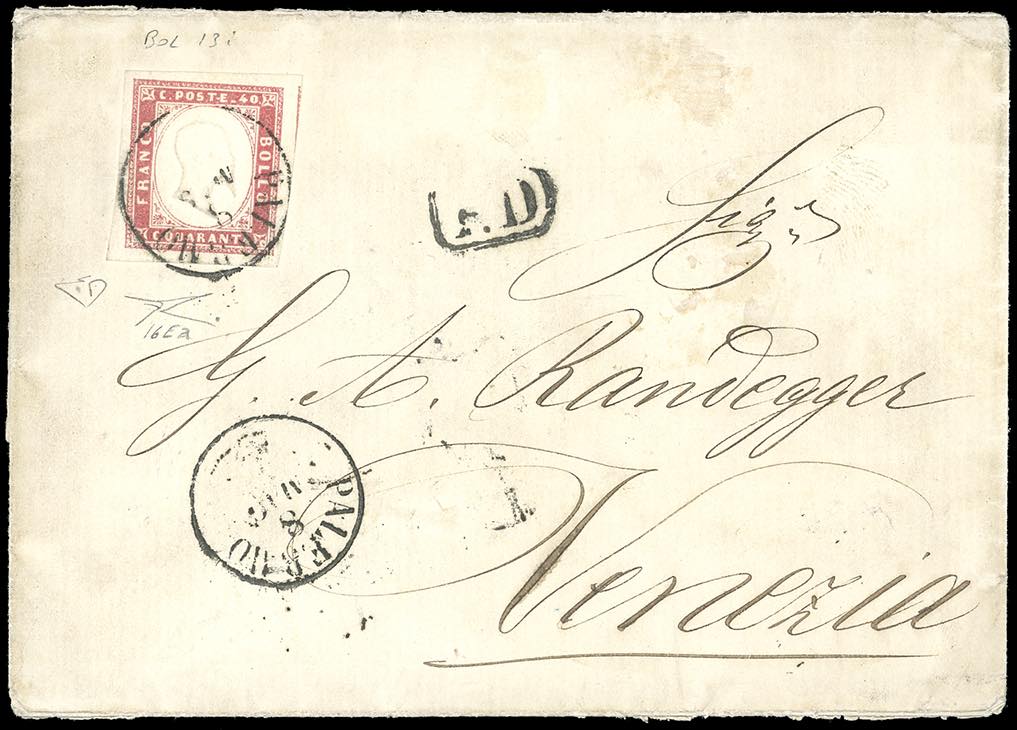 BOL 13i
C. POSTE. 40.
FRANCO
BOLLO
QUARANTA
P.D.
Sig.r
16Ea
G. A. Randegger
PALERMO
8
Venezia